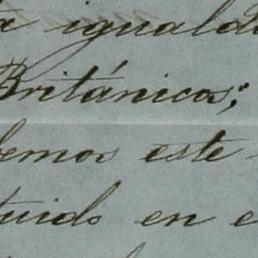 igualda
Británicos;
emos este
tuido en e